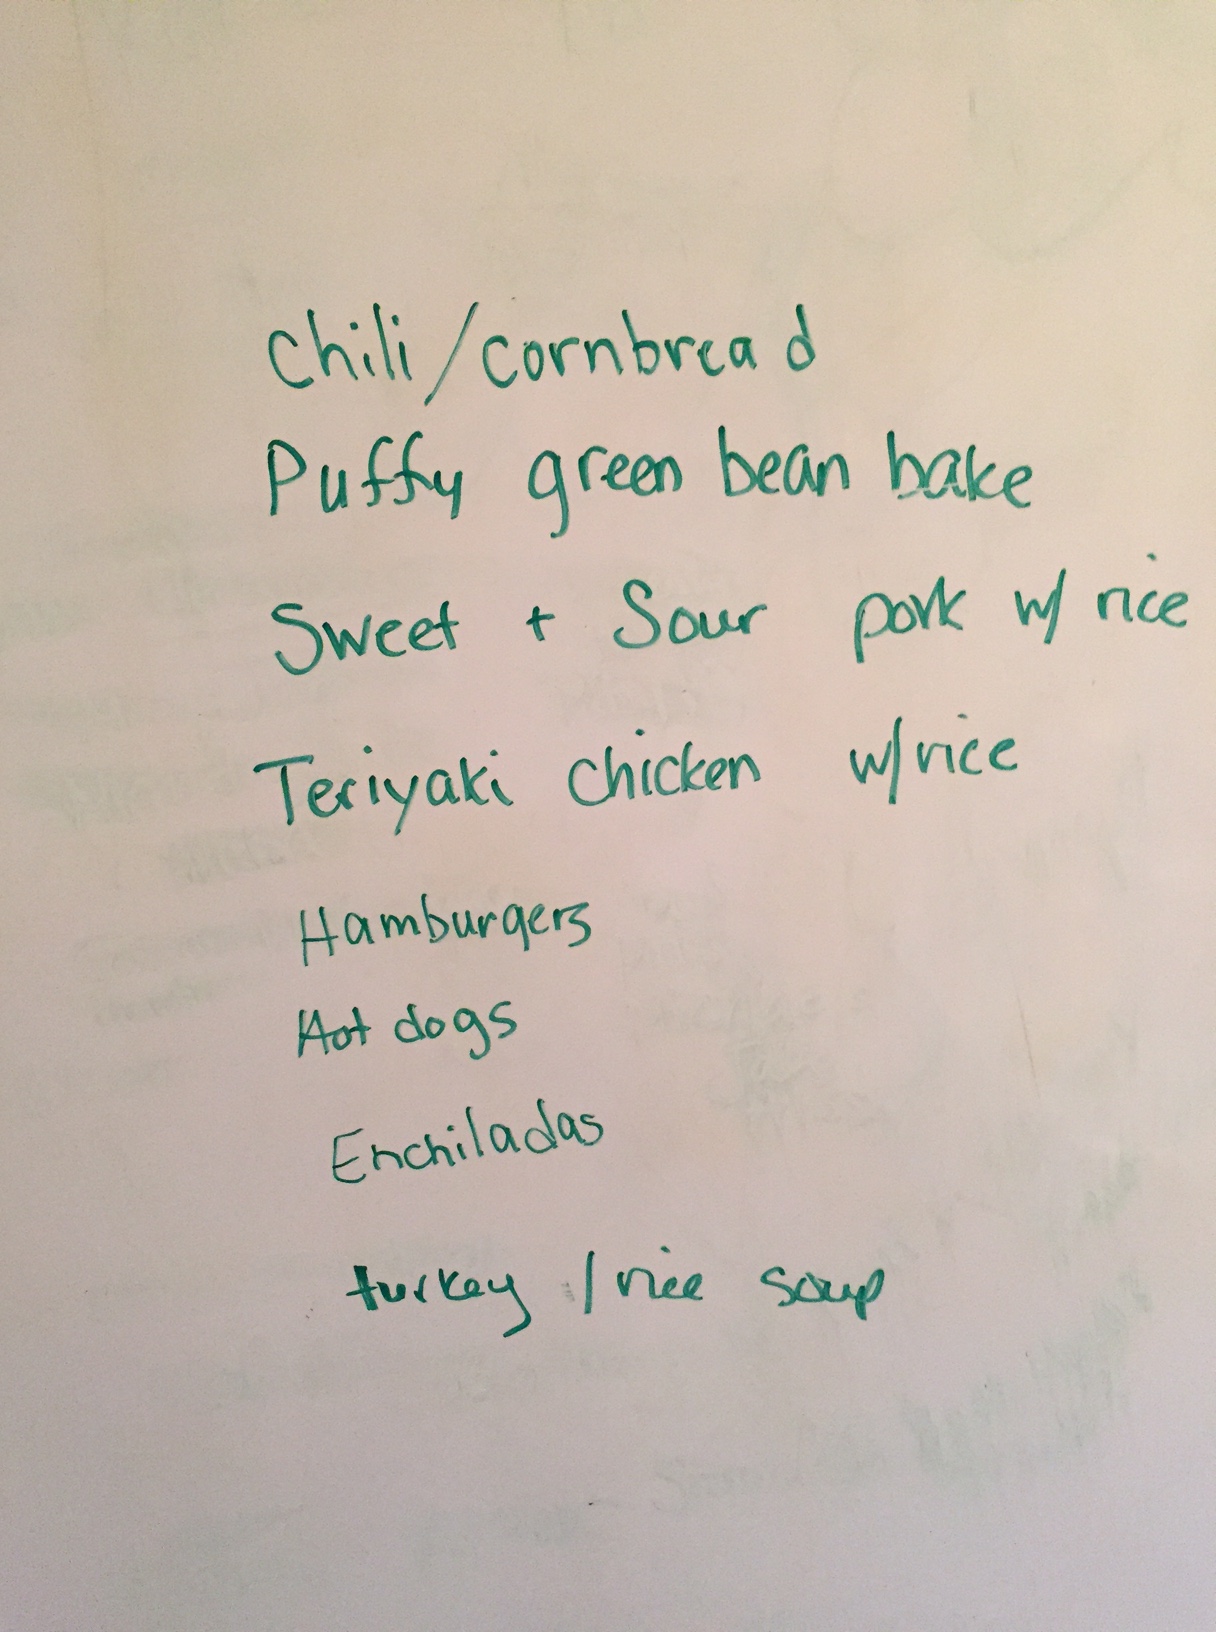 Chili/cornbread
Puffy green bean bake
Sweet + Sour pork w/ rice
Teriyaki chicken w/rice
Hamburgers
Hot dogs
Enchiladas
turkey /rice soup